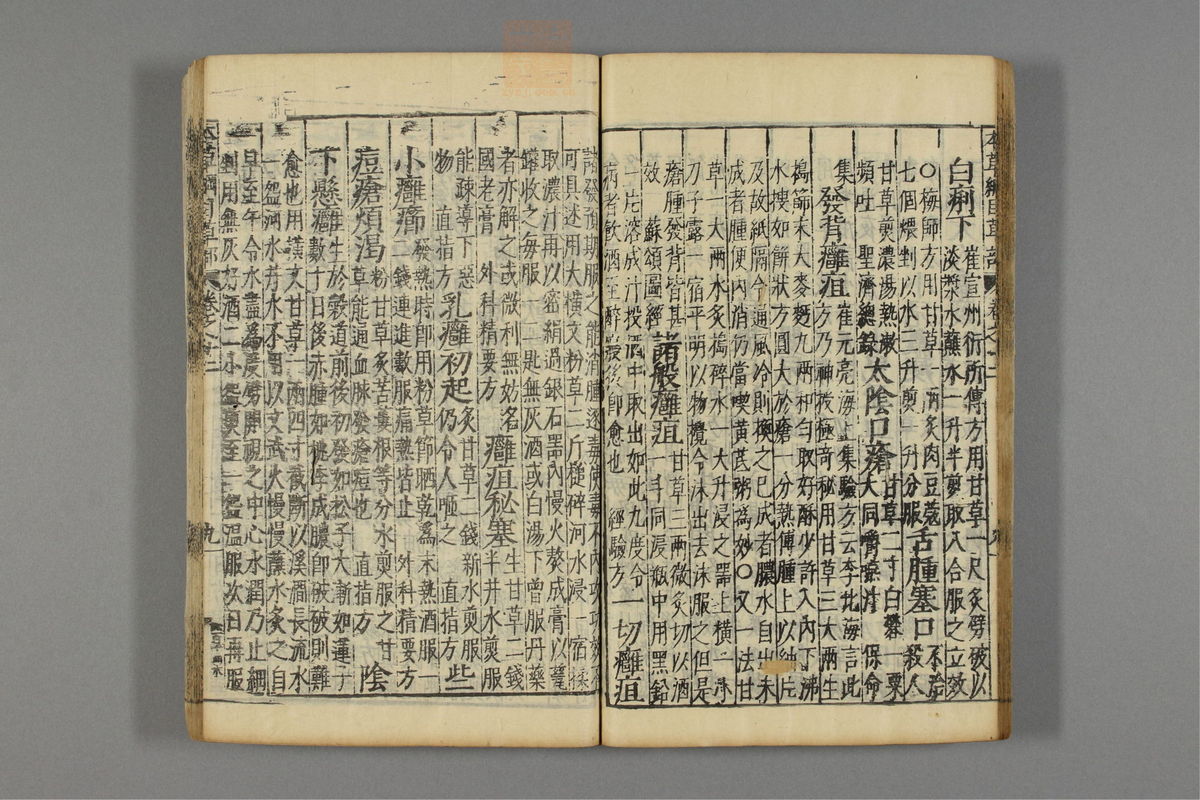 本草綱目草部 卷之十二
白痢下 崔宣州衍所傳方用甘草一尺炙劈破以
淡漿水蘸水一升半煎取八合服之立效
○梅師方用甘草一兩炙肉豆蔻
七個煨剉以水三升煎一升分服 舌腫塞口 不治殺人
甘草煎濃湯熱漱
頻吐 聖濟總錄 太陰口瘡 甘草二寸白礬一栗
大同嚼嚥汁 保命
集 發背癰疽 崔元亮海上集驗方云李北海言此
方乃神授極奇秘用甘草三大兩生
搗篩末大麥麪九兩和勻取好酥少許入內下沸
水搜如餅狀方圓大於瘡一分熱傅腫上以紬片
及故紙隔令通風冷則換之已成者膿水自出未
成者腫便內消仍當喫黃芪粥爲妙○又一法甘
草一大兩水炙搗碎水一大升浸之器上橫一小
刀子露一宿平明以物攪令沫出去沫服之但是
瘡腫發背皆甚
效 蘇頌圖經 諸般癰疽 甘草三兩微炙切以酒
一斗同浸瓶中用黑鉛
一片溶成汁投酒中取出如此九度令
病者飲酒至醉寢後即愈也 經驗方 一切癰疽
諸發預期服之能消腫逐毒使毒不內攻功效不
可具述用大橫文粉草二斤搥碎河水浸一宿揉
取濃汁再以密絹過銀石器內慢火熬成膏以瓷
罐收之每服一二匙無灰酒或白湯下曾服丹藥
者亦解之或微利無妨名
國老膏 外科精要方 癰疽秘塞 生甘草二錢
半井水煎服
能疎導下惡
物 直指方 乳癰初起 炙甘草二錢新水煎服
仍令人咂之 直指方 些
小癰癤 發熱時即用粉草節晒乾爲末熱酒服一
二錢連進數服痛熱皆止 外科精要方
痘瘡煩渴 粉甘草炙苦蔞根等分水煎服之甘
草能通血脉發瘡痘也 直指方 陰
下懸癰 生於穀道前後初發如松子大漸如蓮子
數十日後赤腫如桃李成膿即破破則難
愈也用橫文甘草一兩四寸截斷以溪澗長流水
一盌河水井水不用以文武火慢慢蘸水炙之自
早至午令水盡爲度劈開視之中心水潤乃止細
剉用無灰好酒二小盌煎至一盌溫服次日再服
本草綱目草部 卷之十二 九